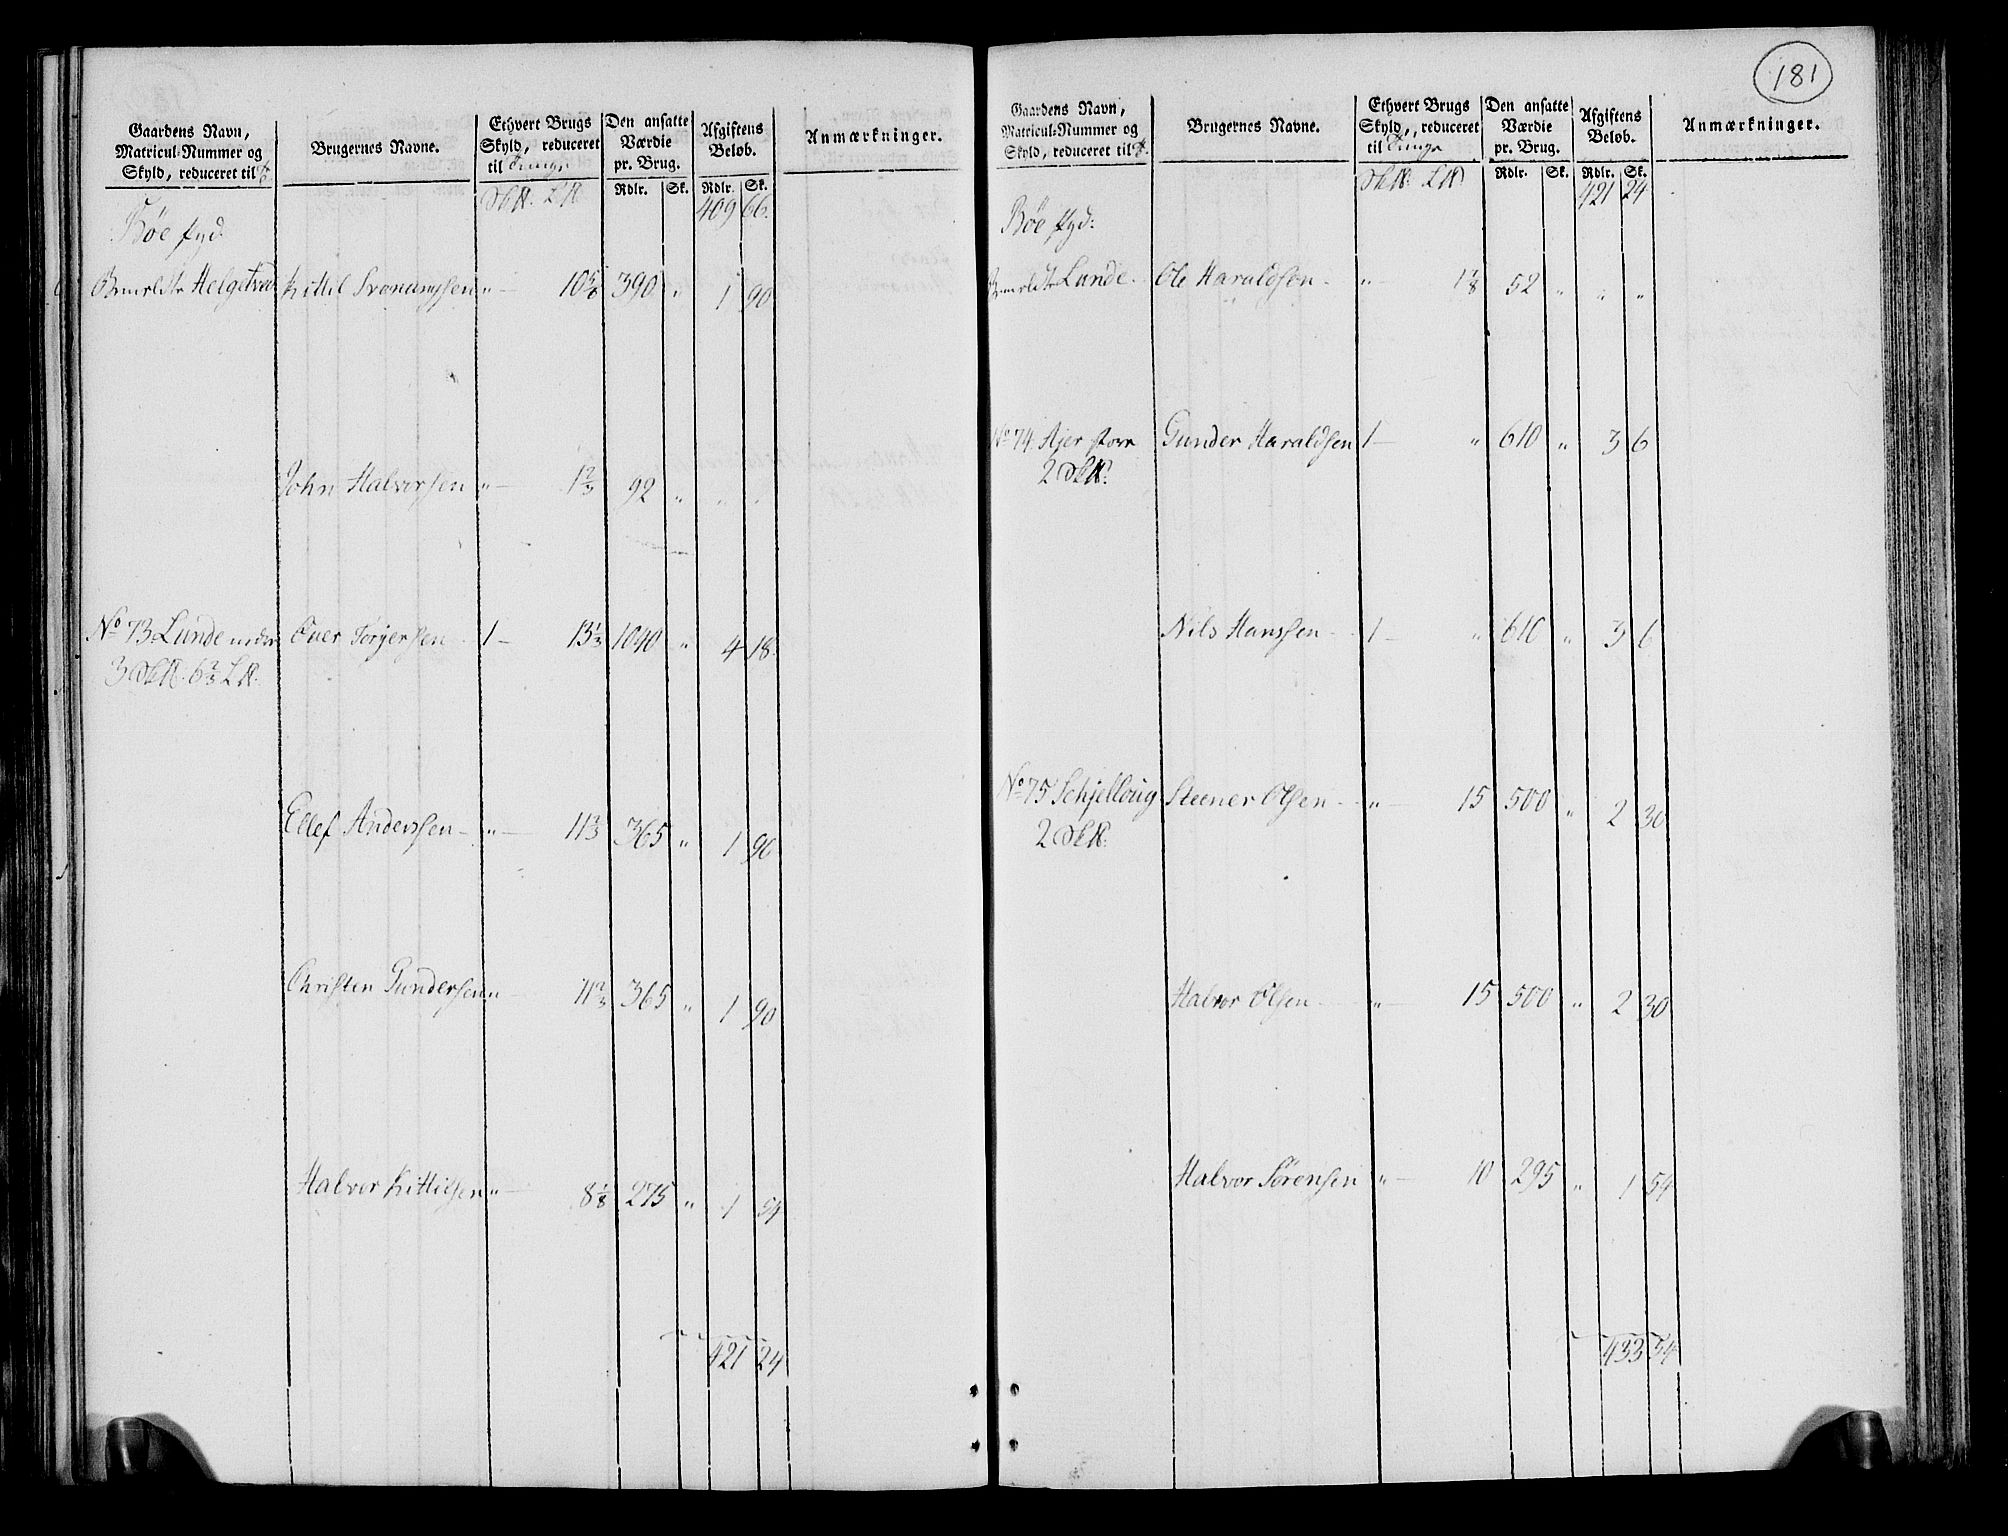 Gaardens Navn,
Matricul-Nummer og
Skyld, reduceret til
Brugernes Navne.
Ethvert Brugs
Skyld, reduceret
til Tunge
Den ansatte
Værdie
pr. Brug.
Afgiftens
Beløb.
Anmærkninger.
Rdlr. Sk. Rdlr. Sk.
409 66.
Bøe
Helgetvedt Kittil " 10 5/6 390 " 1 90
John Halvorsen " 1 2/3 92 " " "
No 73 Lunde nedre Over Torjersen 1 13 1/3 1040 " 4 18.
3 6 2/3
Ellef Anderssen " 11 2/3 365 " 1 90
Christen Gundersen " 11 2/3 365 " 1 90
Halvor Kittilsen " 8 1/8 275 " 1 54
421 24
181
Gaardens Navn,
Matricul-Nummer og
Skyld, reduceret til
Brugernes Navne.
Ethvert Brugs
Skyld, reduceret
til Tunge
Den ansatte
Værdie
pr. Brug.
Afgiftens
Beløb.
Anmærkninger.
Rdlr. Sk. Rdlr. Sk.
421 24
Bøe
Lunde. Ole Haraldsen " 1 1/8 52 " " "
No 74. Ajer store Gunder Haraldsen 1 " 610 " 3 6
2
Nils Hanssen 1 " 610 " 3 6
No 75 Schjelloug Steener Olsen " 15 500 " 2 30
2
Halvor Olsen " 15 500 " 2 30
Halvor Sørensen " 10 295 " 1 54
433 54